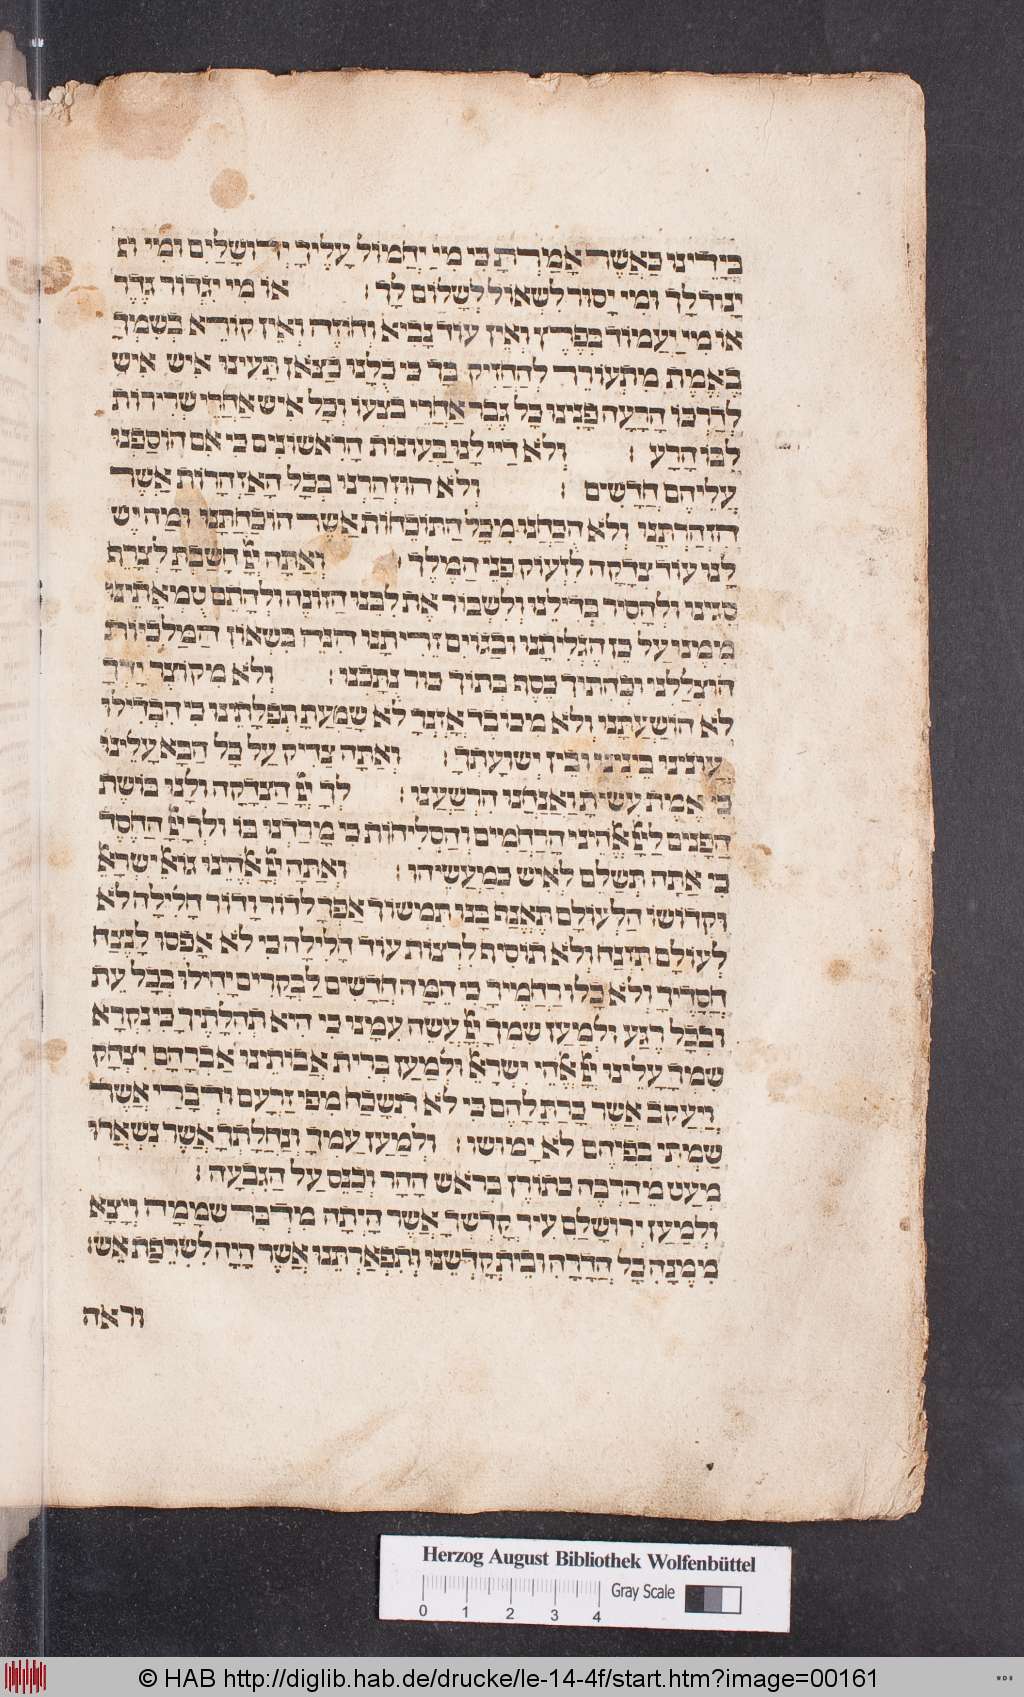 בידינו כאשר אמרת כי מי יחמול עליך ירושלים ומי
ינוד לך ומי יסור לשאול לשלום לך : או מי יגדור גדר
או מי יעמוד בפרץ ואין עוד נביא וחוזה ואין קורא בשמך
באמת מתעורר להחזיק בך כי כלנו כצאן תעינו איש איש
לדרכו הרעה פנינו כל גבר אחרי בצעו וכל איש אחרי שרירות
לבו הרע : ולא דיי לנו בעונות הראשונים כי אם הוספנו
עליהם חדשים : ולא הוזהרנו בכל האזהרות אשר
הזהרתנו ולא הוכחנו מכל התוכחות אשר הוכחתנו ומה יש
לנו עוד צדקה לזעוק פני המלך ואתה יי חשבת לצרף
סגינו ולהסיר בדילנו ולשבור את לבנו הזונה ולהתם טמאתינו
ממנו על כן הגליתנו ובגוים זריתנו הנה בשאון המלכיות
הוצללנו וכהתוך כסף בתוך כור נתכנו : ולא מקוצר ידך
לא הושעתנו ולא מכובד אזנך לא שמעת תפלתינו כי הבדילו
עונינו בינינו ובין ישועתך : ואתה צדיק על כל הבא עלינו
כי אמת עשית ואנחנו הרשענו : לך יי הצדקה ולנו בושת
הפנים ליי אלהינו הרחמים והסליחות כי מרדנו בו ולך יי החסד
כי אתה תשלם לאיש כמעשיהו : ואתה יי אלהינו
וקדושו הלעולם תאנף בנו תמשוך אפך לדור ודור חלילה לא
לעולם תזנח ולא תוסיף לרצות עוד חלילה כי לא אפסו לנצח
חסדיך ולא כלו רחמיך כי המה חדשים לבקרים יחילו בכל עת
ובכל רגע ולמען שמך יי עשה עמנו כי היא תהלתיך כי נקרא
שמך עלינו יי אלהי ישרא ולמען ברית אבותינו אברהם יצחק
ויעקב אשר כרת להם כי לא תשכח מפי זרעם ודברי אשר
שמתי בפיהם לא ימושו : ולמען עמך ונחלתך אשר נשארו
מעט מהרבה כתורן בראש ההר וכנס על הגבעה :
ולמען ירושלם עיר קדשך אשר היתה מדבר שממה ויצא
ממנה כל הדרה ובית קדשנו ותפארתנו אשר היה לשרפת אש :
וראה
Herzog August Bibliothek Wolfenbüttel
0 1 2 3 4 Gray Scale
© HAB http://diglib.hab.de/drucke/le-14-4f/start.htm?image=00161